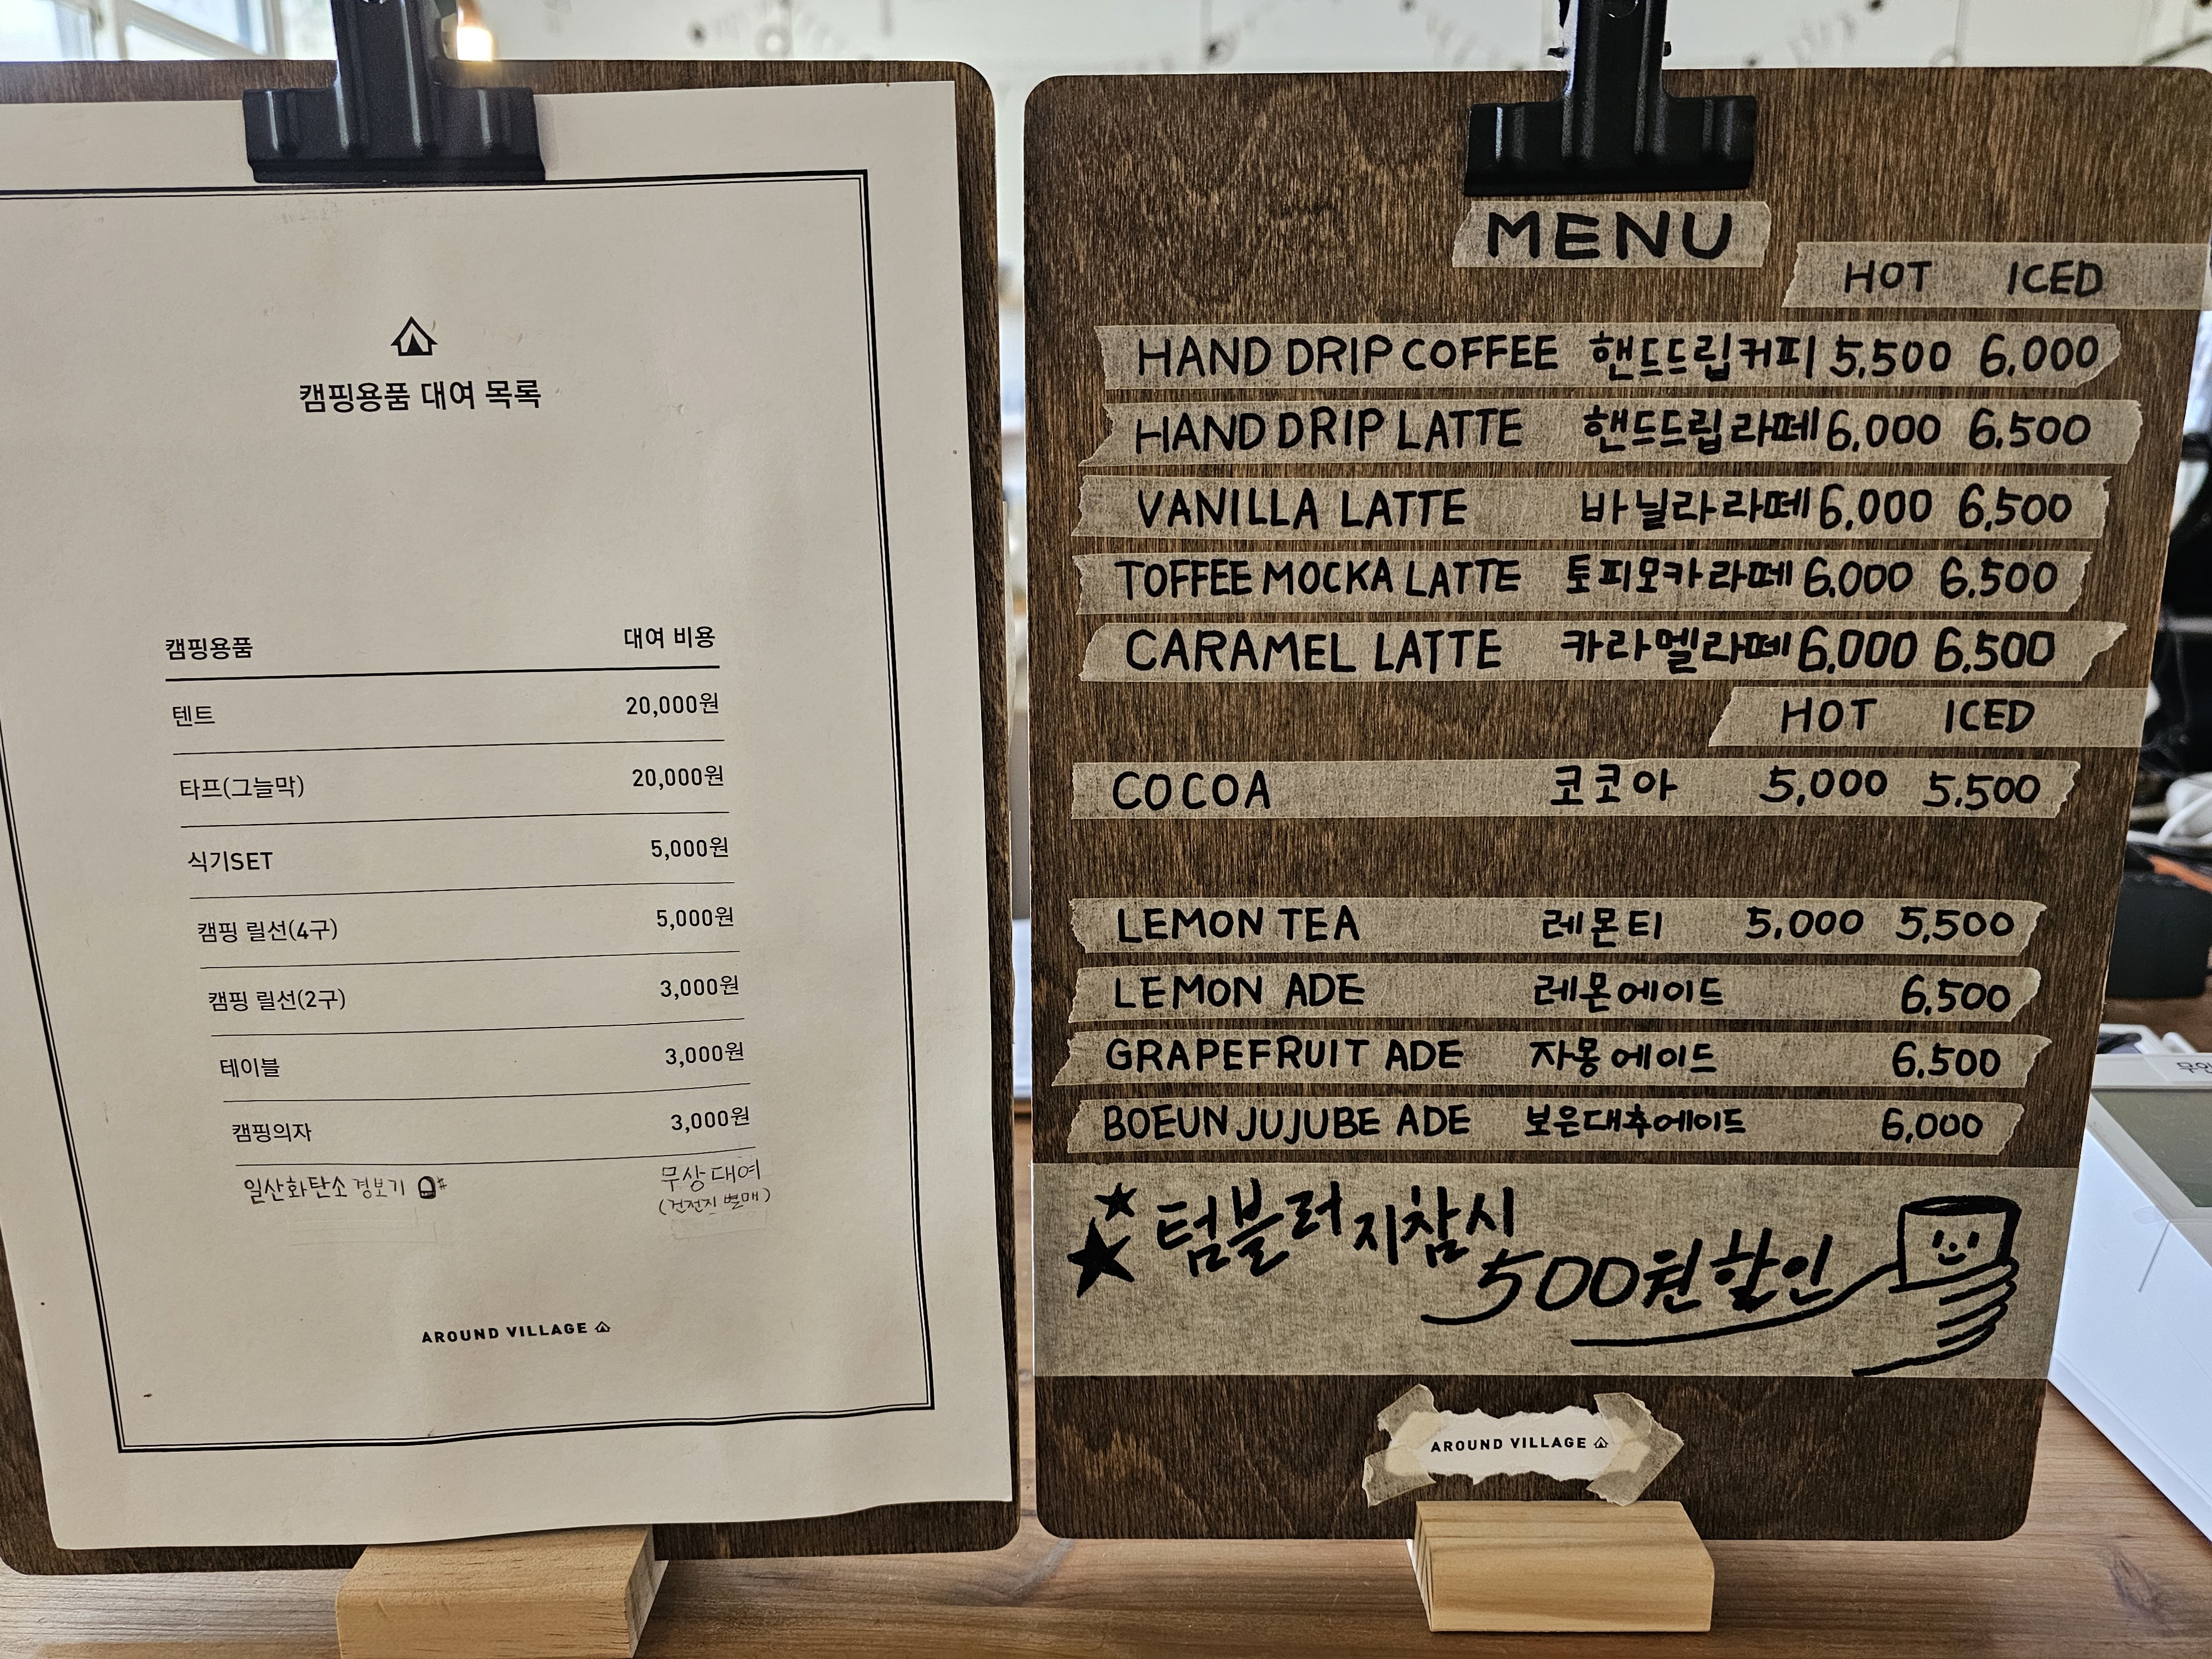 캠핑용품 대여 목록
캠핑용품 대여 비용
텐트 20,000원
타프(그늘막) 20,000원
식기SET 5,000원
캠핑 릴선(4구) 5,000원
캠핑 릴선(2구) 3,000원
테이블 3,000원
캠핑의자 3,000원
일산화탄소 경보기 무상대여
(건전지 별매)
AROUND VILLAGE
MENU
HOT ICED
HAND DRIP COFFEE 핸드드립커피 5,500 6,000
HAND DRIP LATTE 핸드드립라떼 6,000 6,500
VANILLA LATTE 바닐라라떼 6,000 6,500
TOFFEE MOCKA LATTE 토피모카라떼 6,000 6,500
CARAMEL LATTE 카라멜라떼 6,000 6,500
HOT ICED
COCOA 코코아 5,000 5,500
LEMON TEA 레몬티 5,000 5,500
LEMON ADE 레몬에이드 6,500
GRAPEFRUIT ADE 자몽에이드 6,500
BOEUN JUJUBE ADE 보은대추에이드 6,000
텀블러 지참시
500원 할인
AROUND VILLAGE